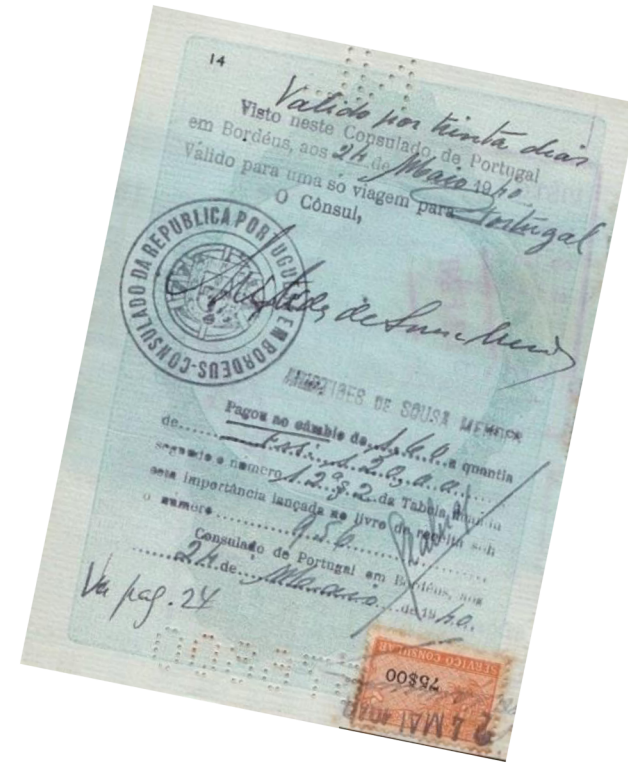 14
Valido por trinta dias
Visto neste Consulado de Portugal
em Bordéus, aos 24 de Maio 1940
Válido para uma só viagem para Portugal
O Cônsul,
CONSULADO DA REPUBLICA PORTUGUESA EM BORDEUS
Aristides de Sousa Mendes
ARISTIDES DE SOUSA MENDES
Pagou ao câmbio de a quantia
de
segundo o numero da Tabela,
esta importância lançada no livro de receita sob
o numero
Consulado de Portugal em Bordéus, aos
24 de Maio de 1940.
Vu pag. 24
SERVIÇO CONSULAR
75$00
24 MAI 1940